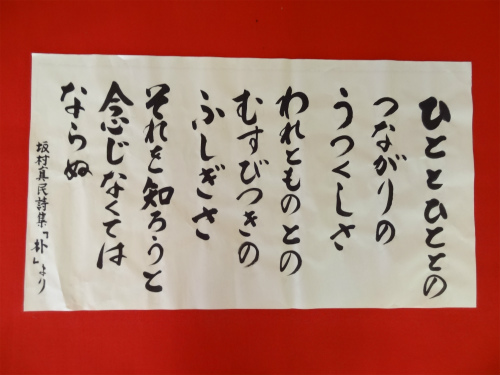 ひととひととの
つながりの
うつくしさ
われとものとの
むすびつきの
ふしぎさ
それを知ろうと
念じなくては
ならぬ
坂村真民詩集「朴」より